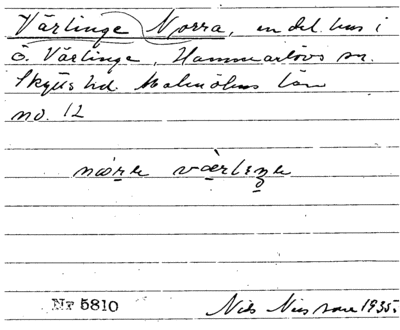 Värlinge Norra, en del hus i
Ö. Värlinge, Hammarlövs sn.
Skytts hd. Malmöhus län
no. 12
Nr 5810 Nils Nilsson 1935.